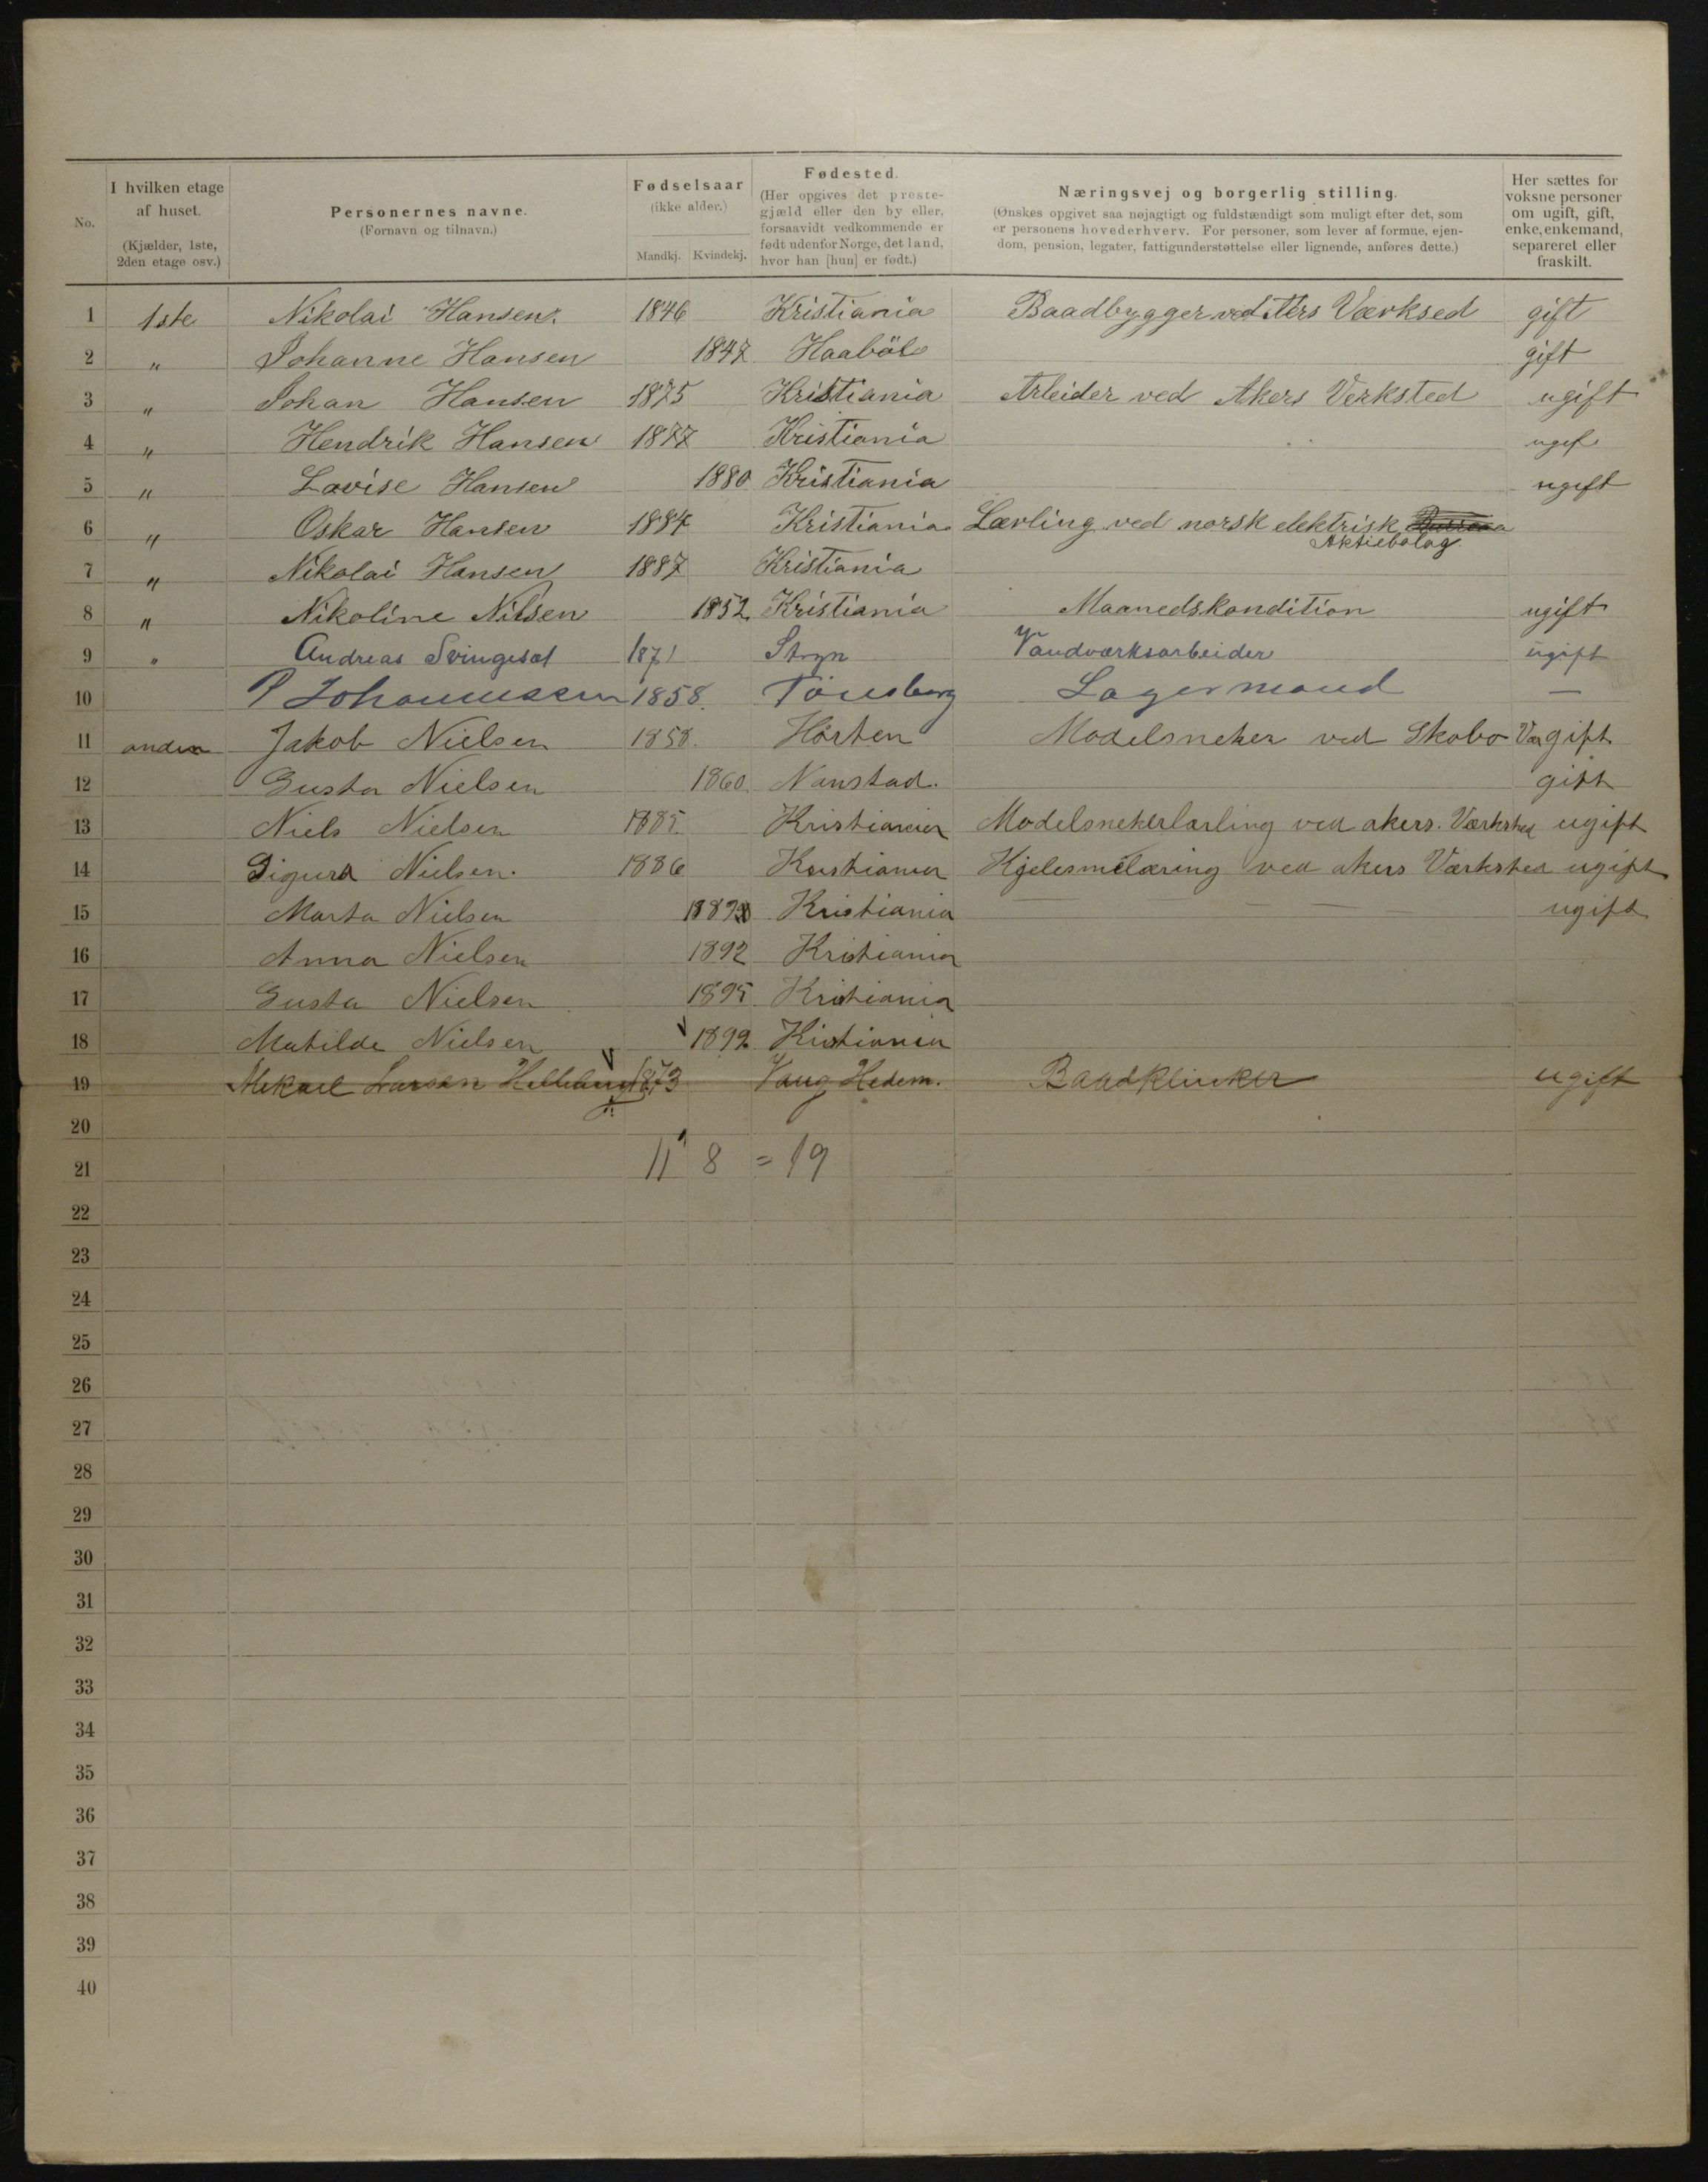 No.
I hvilken etage af huset. (Kjælder, 1ste, 2den etage osv.)
Personernes navne. (Fornavn og tilnavn.)
Fødselsaar (ikke alder.) Mandkj. Kvindekj.
Fødested. (Her opgives det prestegjæld eller den by eller, forsaavidt vedkommende er født udenfor Norge, det land, hvor han [hun] er født.)
Næringsvej og borgerlig stilling. (Ønskes opgivet saa nøjagtigt og fuldstændigt som muligt efter det, som er personens hovederhverv. For personer, som lever af formue, ejendom, pension, legater, fattigunderstøttelse eller lignende, anføres dette.)
Her sættes for voksne personer om ugift, gift, enke, enkemand, separeret eller fraskilt.
1 1ste Nikolai Hansen. 1846 Kristiania Baadbygger ved Værksed gift
2 " Johanne Hansen 1847 Haaböl gift
3 " Johan Hansen 1875 Kristiania Arbeider ved Akers Verksted ugift
4 " Hendrik Hansen 1877 Kristiania ugif
5 " Lovise Hansen 1880 Kristiania ugift
6 " Oskar Hansen 1884 Kristiania Lærling ved norsk elektrisk
Aktiebolag
7 " Nikolai Hansen 1887 Kristiania
8 " Nikoline Nilsen 1852 Kristiania Maanedskondition ugift
9 " Andreas Svingesæt 1871 Stryn Vandværksarbeider ugift
10 P Johannessen 1858. Tönsberg Lagermand —
11 anden Jakob Nielsen 1858. Horten Modelsneker ved Skabo Væ gift
12 Gusta Nielsen 1860. Nanstad. gift
13 Niels Nielsen 1885. Kristiania Modelsnekerlærling ved akers. Værksted ugift
14 Sigurd Nielsen. 1886 Kristiania Kjelesmelæring ved akers Værksted ugift
15 Marta Nielsen Kristiania — — — ugift
16 Anna Nielsen 1892 Kristiania
17 Gusta Nielsen 1895 Kristiania
18 Matilde Nielsen 1899 Kristiania
19 Mikael Larsen 1873 Vang Hedem. Baadklinker ugift
20
21 11 8 = 19
22
23
24
25
26
27
28
29
30
31
32
33
34
35
36
37
38
39
40